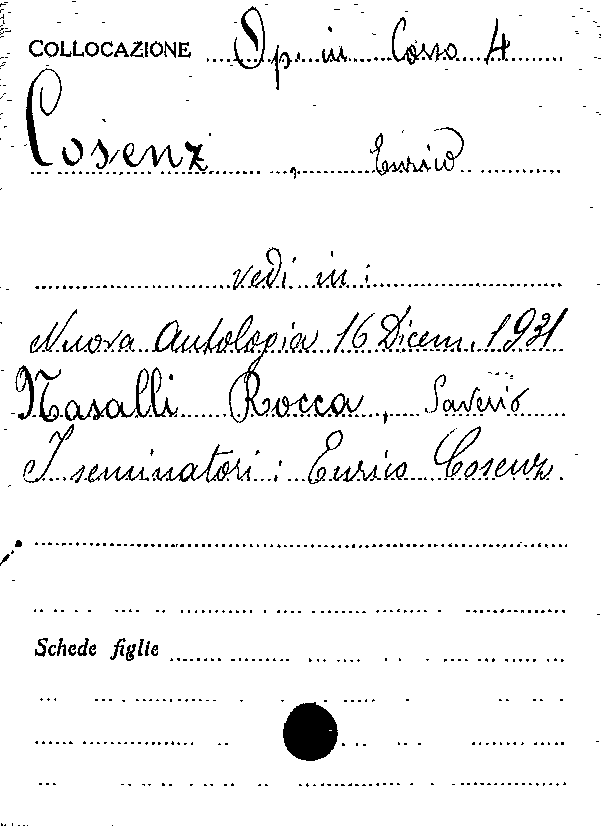 COLLOCAZIONE Op. in Corso 4
Cosenz, Enrico
vedi in:
Nuova Antologia 16 Dicem. 1931
Nasalli Rocca, Saverio
I seminatori: Enrico Cosenz.
Schede figlie